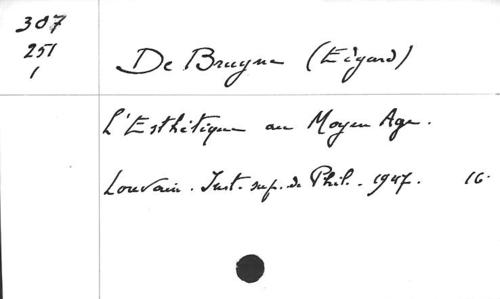 307
251
1
De Bruyne (Edgard)
L'Esthétique au Moyen Age.
Louvain. Inst. sup. de Phil. 1947. 16.